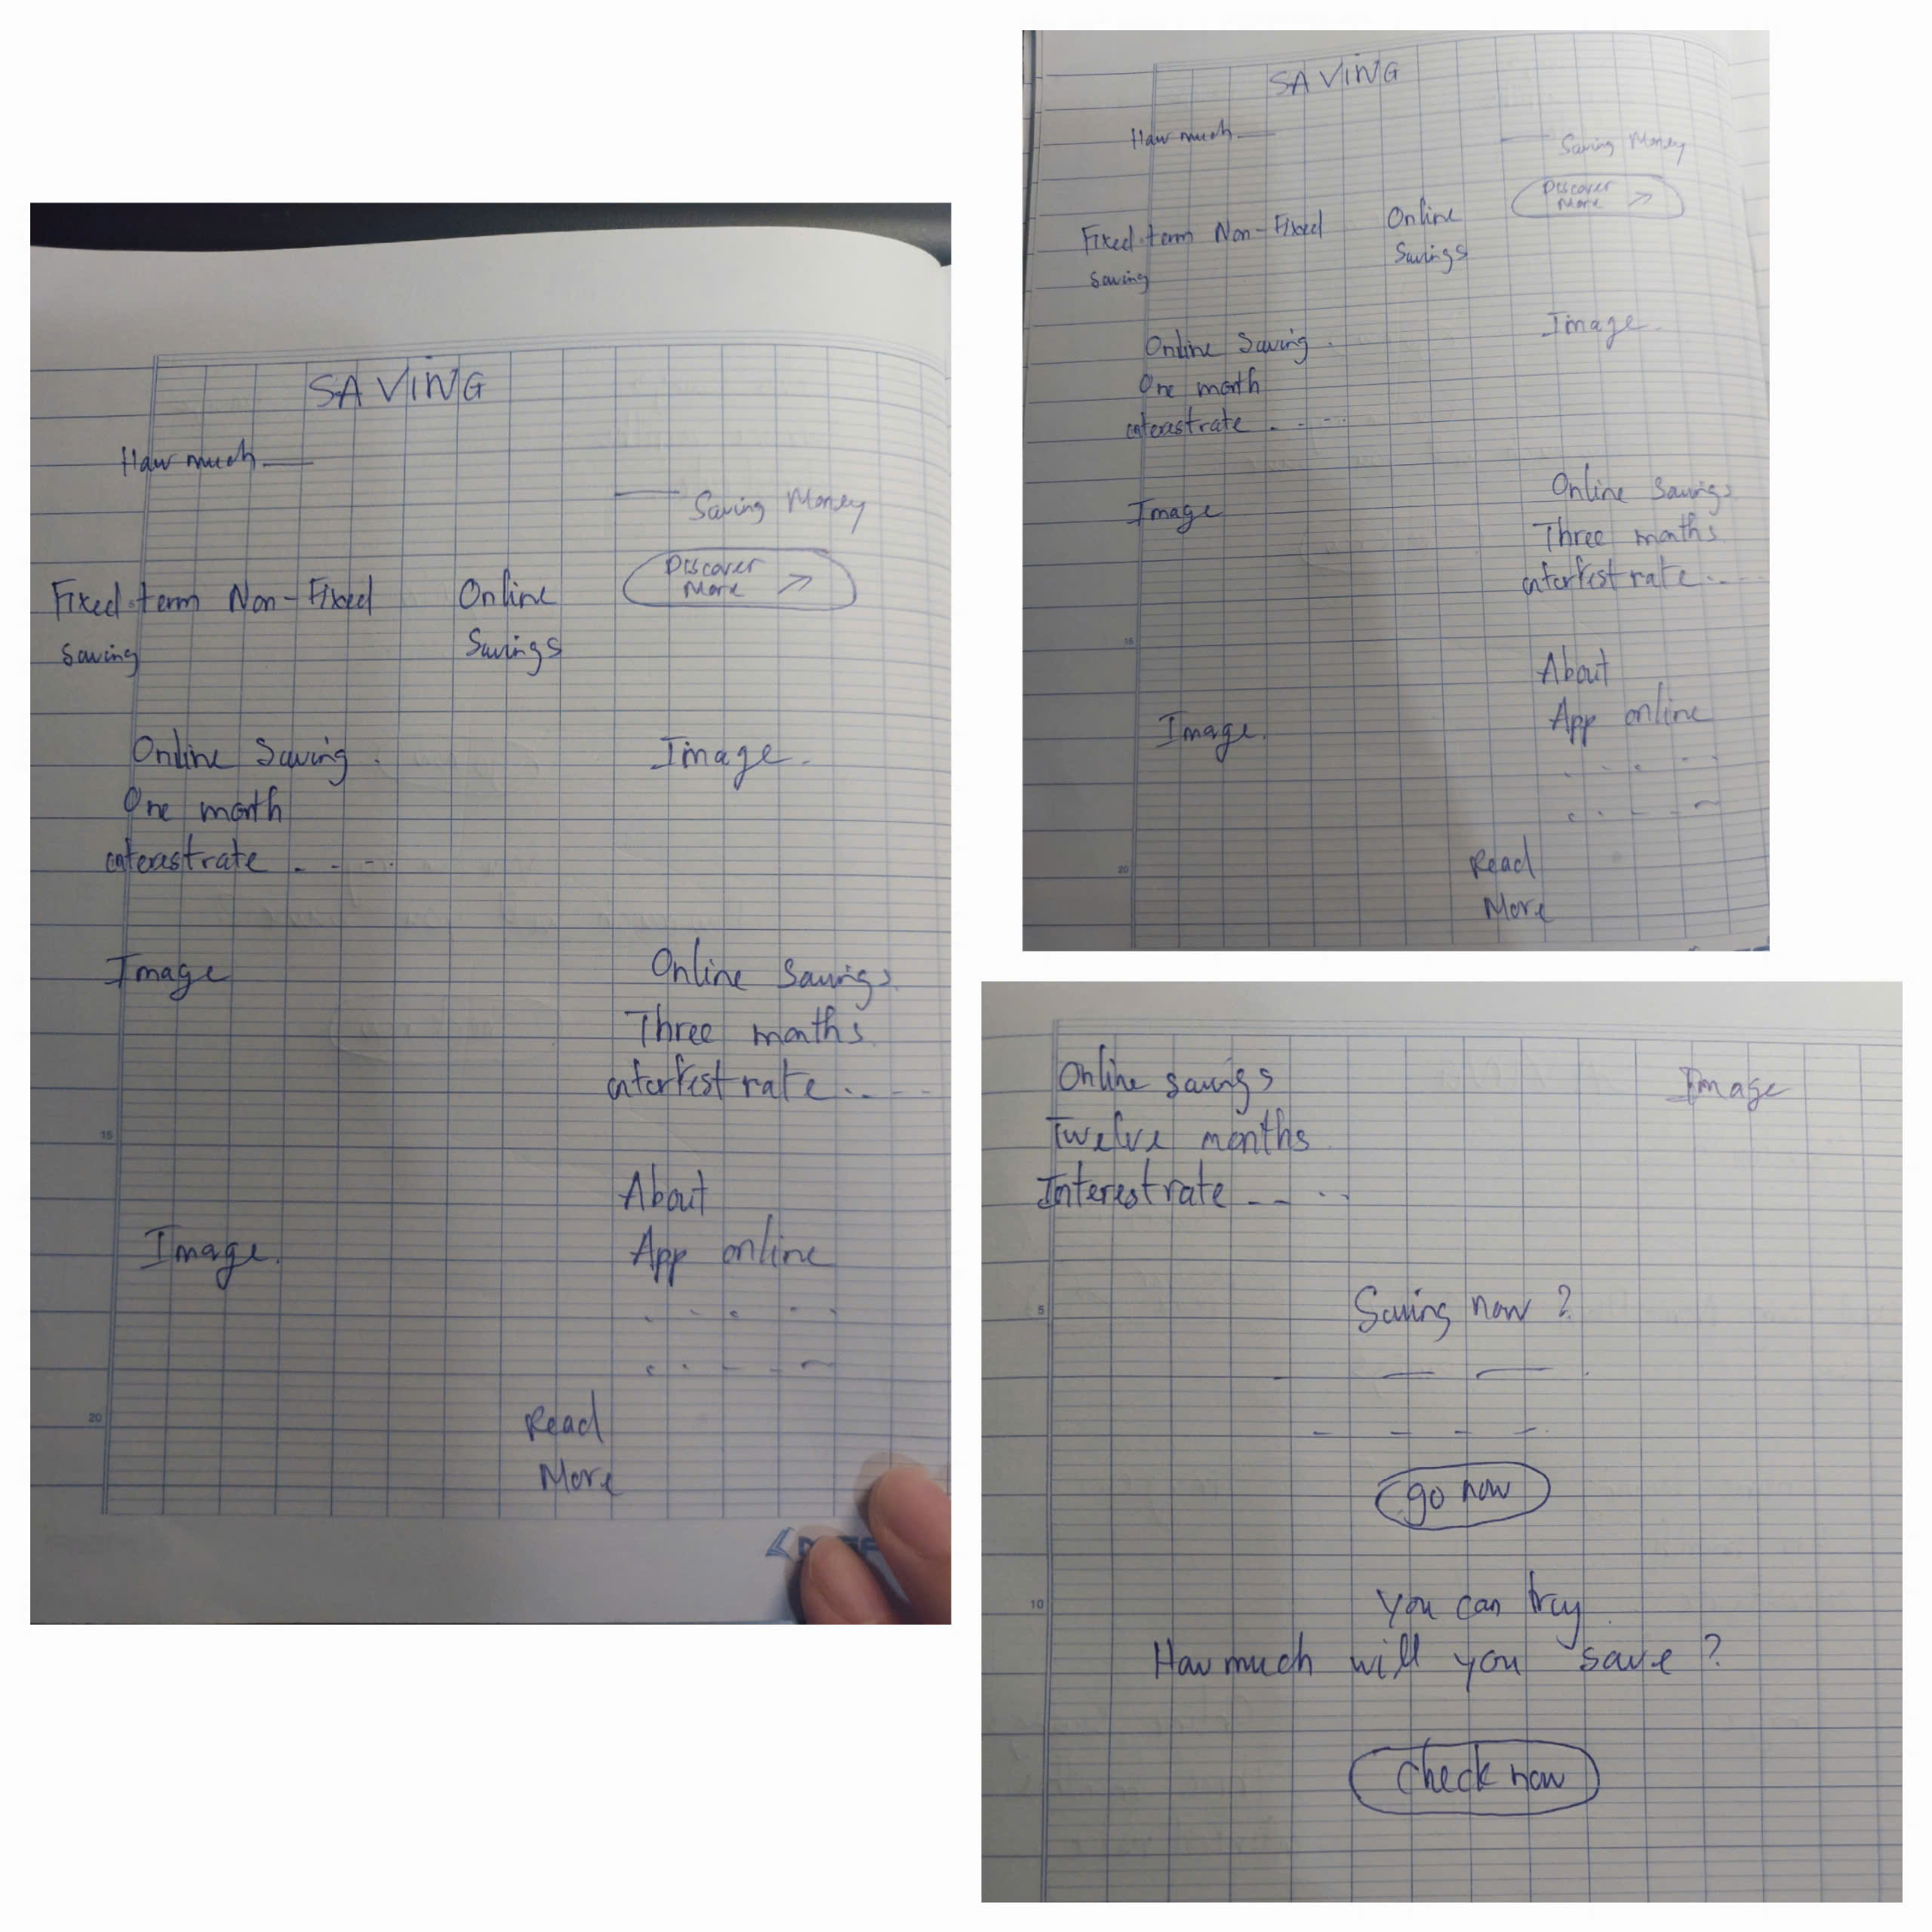 SAVING
Haw much
Saving Money
Discover
More
Fixed term Non-Fixed Online
Saving Savings
Online Saving. Image.
One month
interestrate . - - -
Image Online Savings
Three months
interfestrate . . - -
About
Image. App online
Read
More
15
20
SAVING
Haw much
Saving Money
Discover
More
Fixed term Non-Fixed Online
Saving Savings
Online Saving. Image.
One month
interestrate . - - -
Image Online Savings
Three months
interfestrate . . - -
15
About
Image. App online
20
Read
More
Online savings Image
Twelve months
Interestrate - - - -
5
Saving now ?
go now
10
You can try
How much will you save ?
Check now